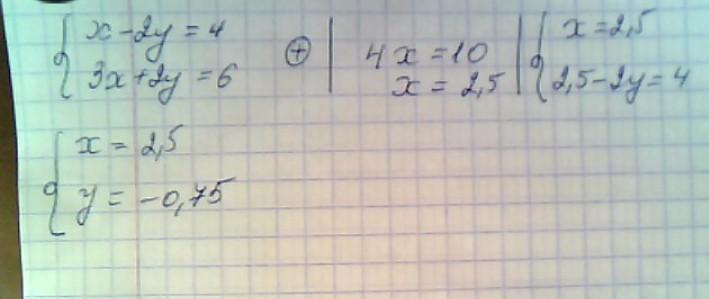 x - 2y = 4
3x + 2y = 6
⊕
4x = 10
x = 2,5
x = 2,5
2,5 - 2y = 4
x = 2,5
y = -0,75